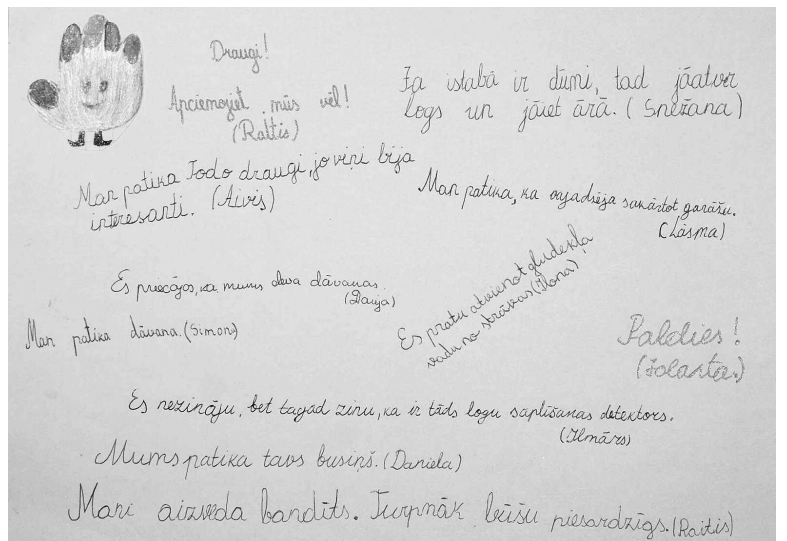 Draugi!
Apciemojiet mūs vēl!
(Raitis)
Ja istabā ir dūmi, tad jāatver
logs un jāiet ārā. (Snežana)
Man patika Todo draugi, jo viņi bija
interesanti. (Aivis)
Man patika, ka vajadzēja sakārtot garāžu.
(Lāsma)
Es priecājos, ka mums deva dāvanas.
(Danja)
Man patika dāvana. (Simon)
Es protu atvienot gludekļa
vadu no strāvas (Ilona)
Paldies!
(Jolanta.)
Es nezināju, bet tagad zinu, ka ir tāds logu saplīšanas detektors.
(Ilmārs)
Mums patika tavs busiņš. (Daniela)
Mani aizveda bandīts. Turpmāk būšu piesardzīgs. (Raitis)